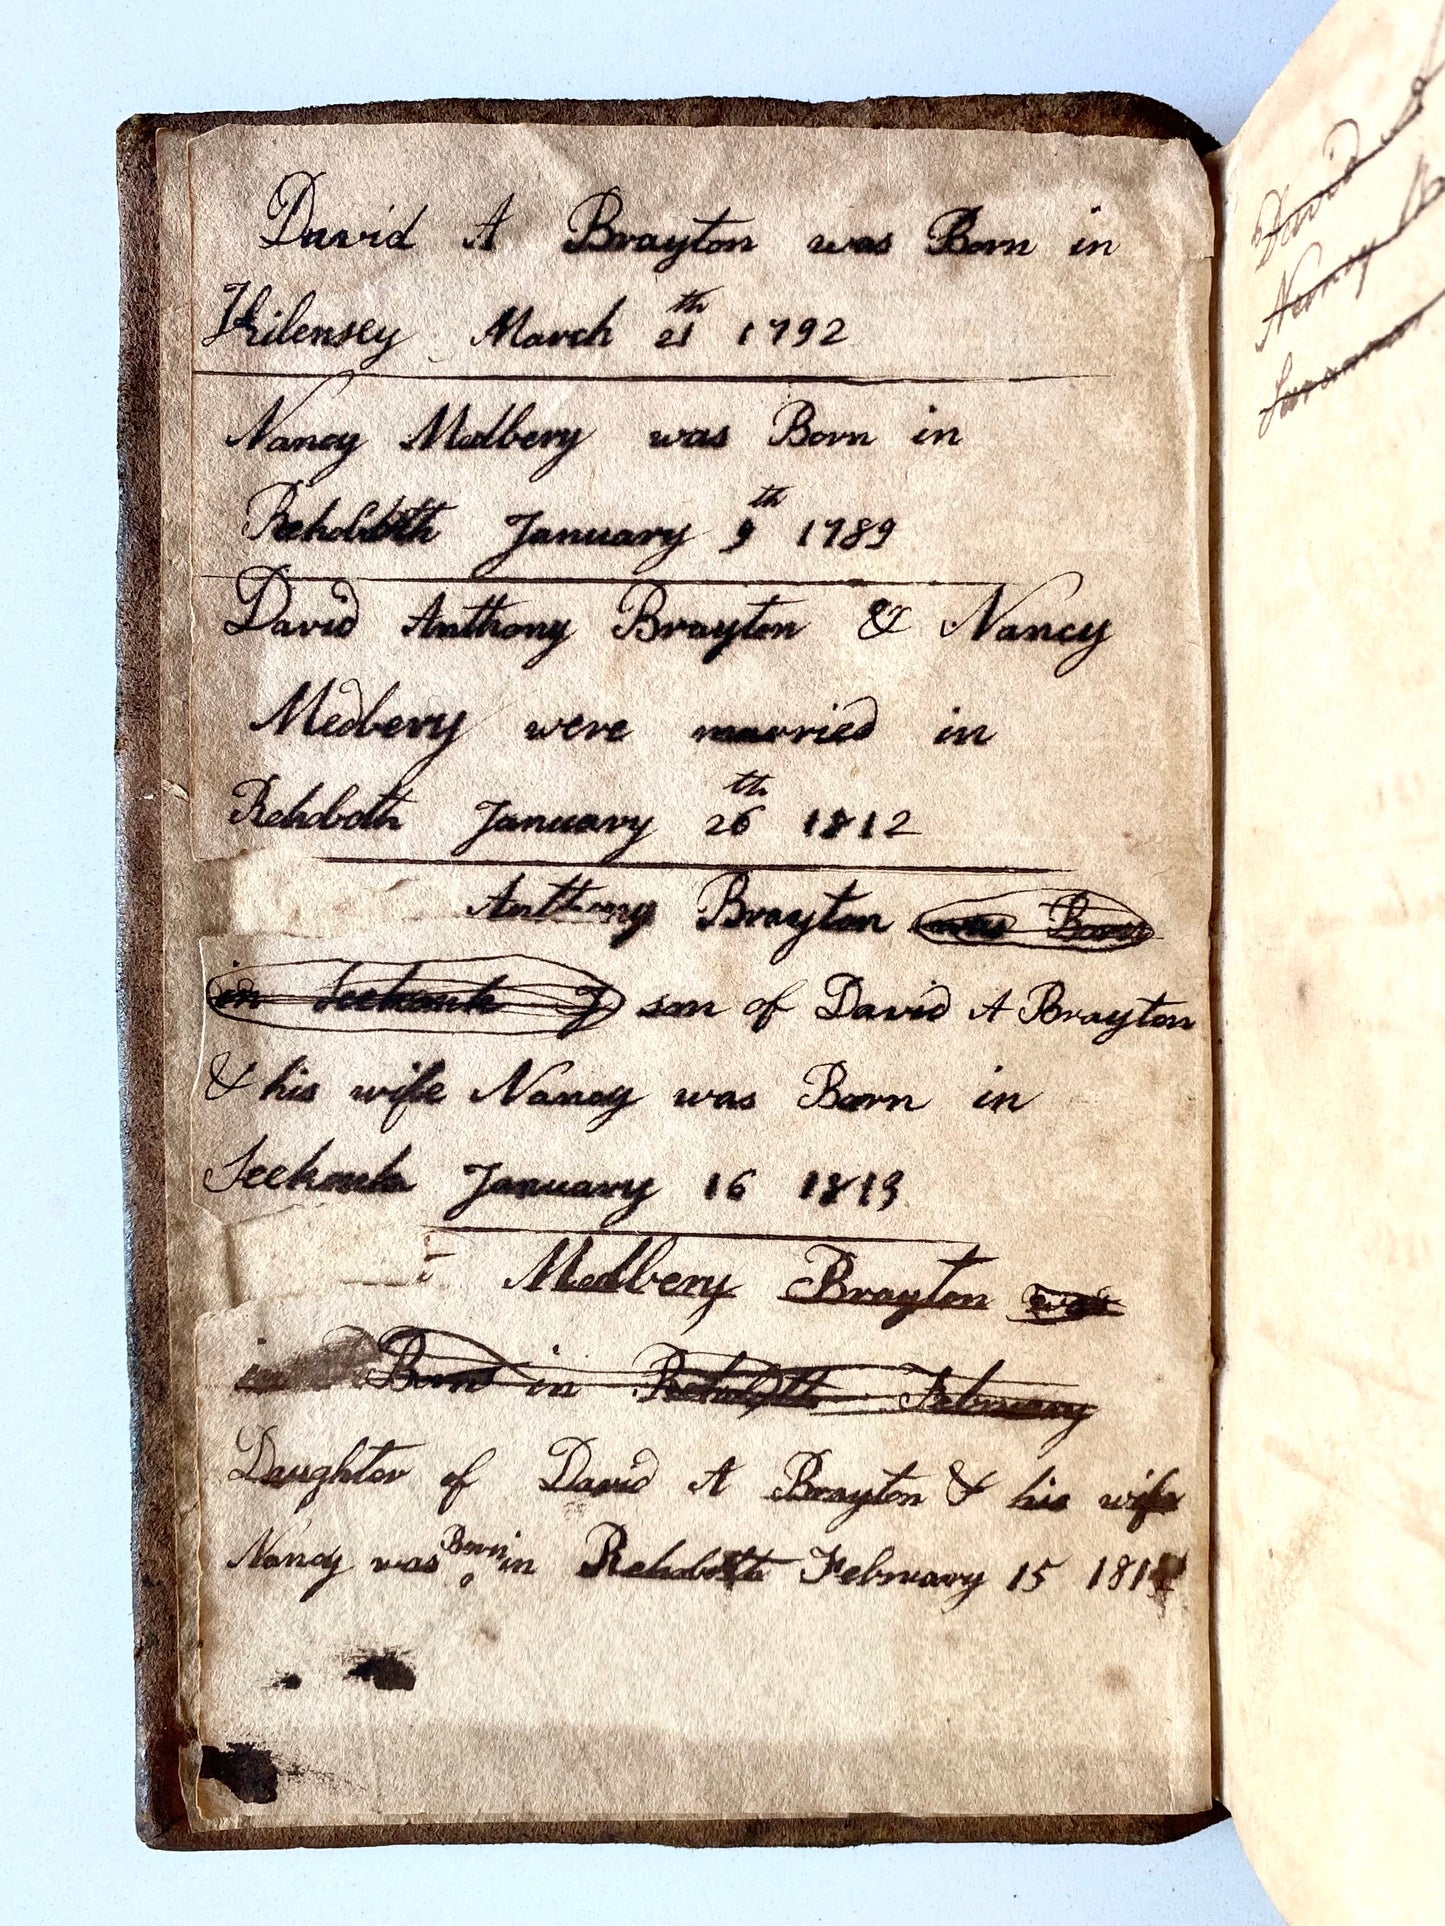 David A Brayton was Born in
March 21th 1792
Nancy Medbery was Born in
Rehoboth January 9th 1789
David Anthony Brayton & Nancy
Medbery were married in
Rehoboth January 26th 1812
Anthony Brayton was Born
in Seekonk J son of David A Brayton
& his wife Nancy was Born in
Seekonk January 16 1813
Medbery Brayton was
Born in Rehoboth February
Daughter of David A Brayton & his wife
Nancy was Born in Rehoboth February 15
David
Nancy